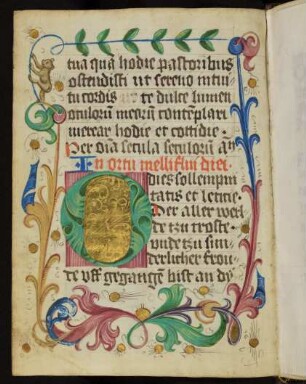 tua qua hodie pastoribus
ostendisti ut sereno intui
tu cordis te dulce lumen
oculorum meorum contemplari
merear hodie et cottidie.
Per omnia secula seculorum am
In ortu melliflui diei
O dies sollempni
tatis et leticie
Der aller welt
de tzu troste
unde tzu sun
derlicher frou
de uff gegangen bist an dy